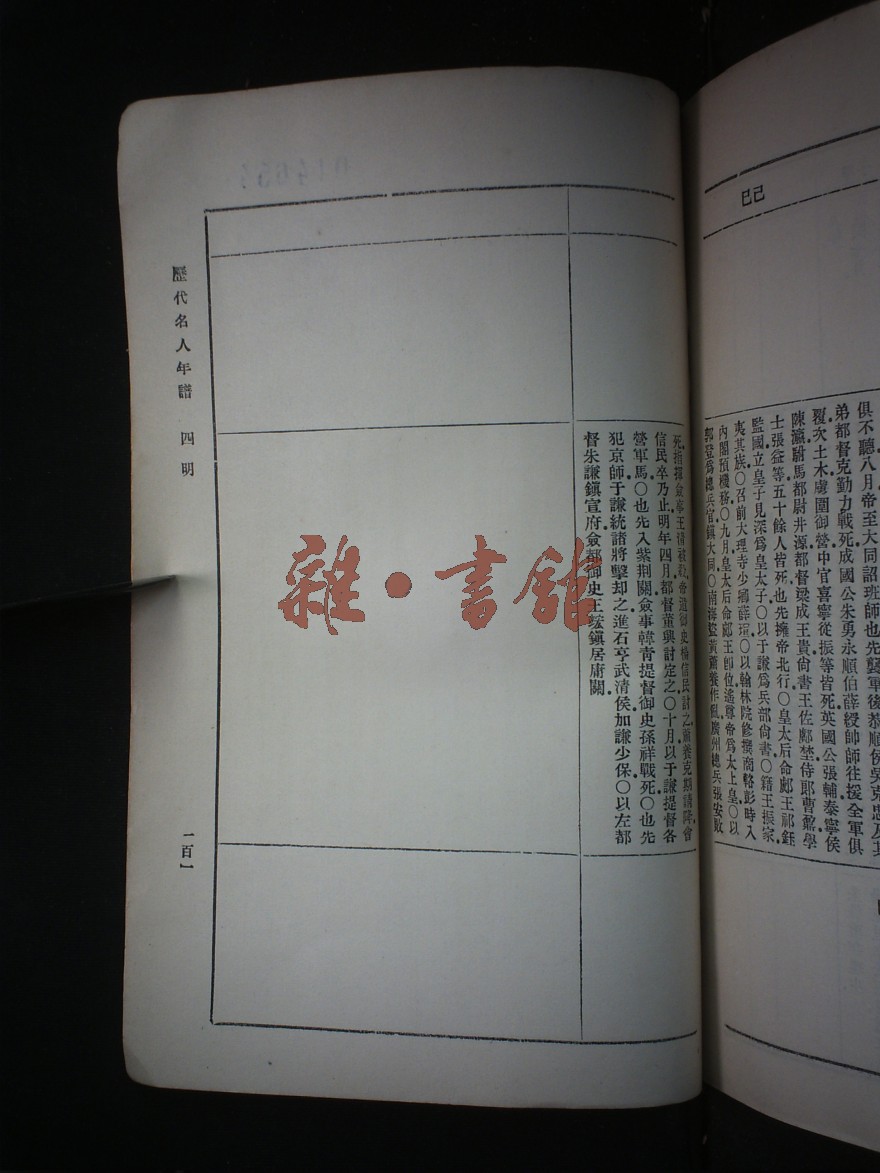 己巳
俱不聽八月帝至大同詔班師也先襲軍後恭順侯吳克忠及其
弟都督克勤力戰死成國公朱勇永順伯薛綬帥師往援全軍俱
覆次土木虜圍御營中官喜寧從振等皆死英國公張輔泰寧侯
陳瀛駙馬都尉井源都督梁成王貴尙書王佐鄺埜侍郞曹鼐學
士張益等五十餘人皆死也先擁帝北行○皇太后命郕王祁鈺
監國立皇子見深爲皇太子○以于謙爲兵部尙書○籍王振家
夷其族○召前大理寺少卿薛瑄○以翰林院修撰商輅彭時入
內閣預機務○九月皇太后命郕王卽位遙尊帝爲太上皇○以
郭登爲總兵官鎭大同○南海盜黃蕭養作亂廣州總兵張安敗
死指揮僉事王淸被殺帝遣御史楊信民討之蕭養克期請降會
信民卒乃止明年四月都督董興討定之○十月以于謙提督各
營軍馬○也先入紫荆關僉事韓靑提督御史孫祥戰死○也先
犯京師于謙統諸將擊却之進石亨武淸侯加謙少保○以左都
督朱謙鎭宣府僉都御史王竑鎭居庸關
歷代名人年譜 四明
一百一
雜·書館